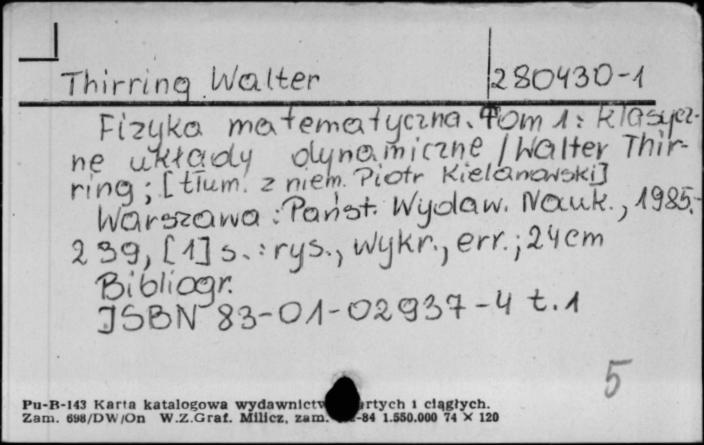 Thirring Walter 280430-1
Fizyka matematyczna. Tom 1: klasycz-
ne układy dynamiczne / Walter Thir-
ring; [tłum. z niem. Piotr Kielanowski]
Warszawa: Państ. Wydaw. Nauk., 1985.-
239, [1] s. : rys., wykr., err.; 24cm
Bibliogr.
ISBN 83-01-02937-4 t.1
5
Pu-B-143 Karta katalogowa wydawnictw artych i ciągłych.
Zam. 698/DW/On W.Z.Graf. Milicz, zam. -84 1.550.000 74 × 120